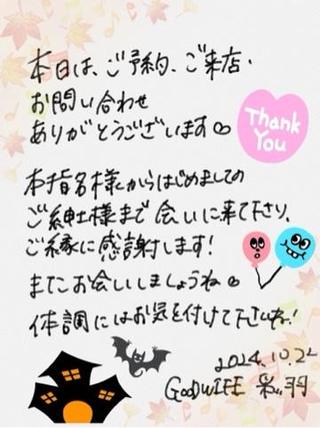 本日は、ご予約、ご来店・
お問い合わせ
ありがとうございます♡
Thank
You
本指名様からはじめましての
ご紳士様まで会いに来て下さり、
ご縁に感謝します!
またお会いしましょうね♡
体調にはお気を付けて下さいね!
2024.10.22
GOODWIFE 彩羽